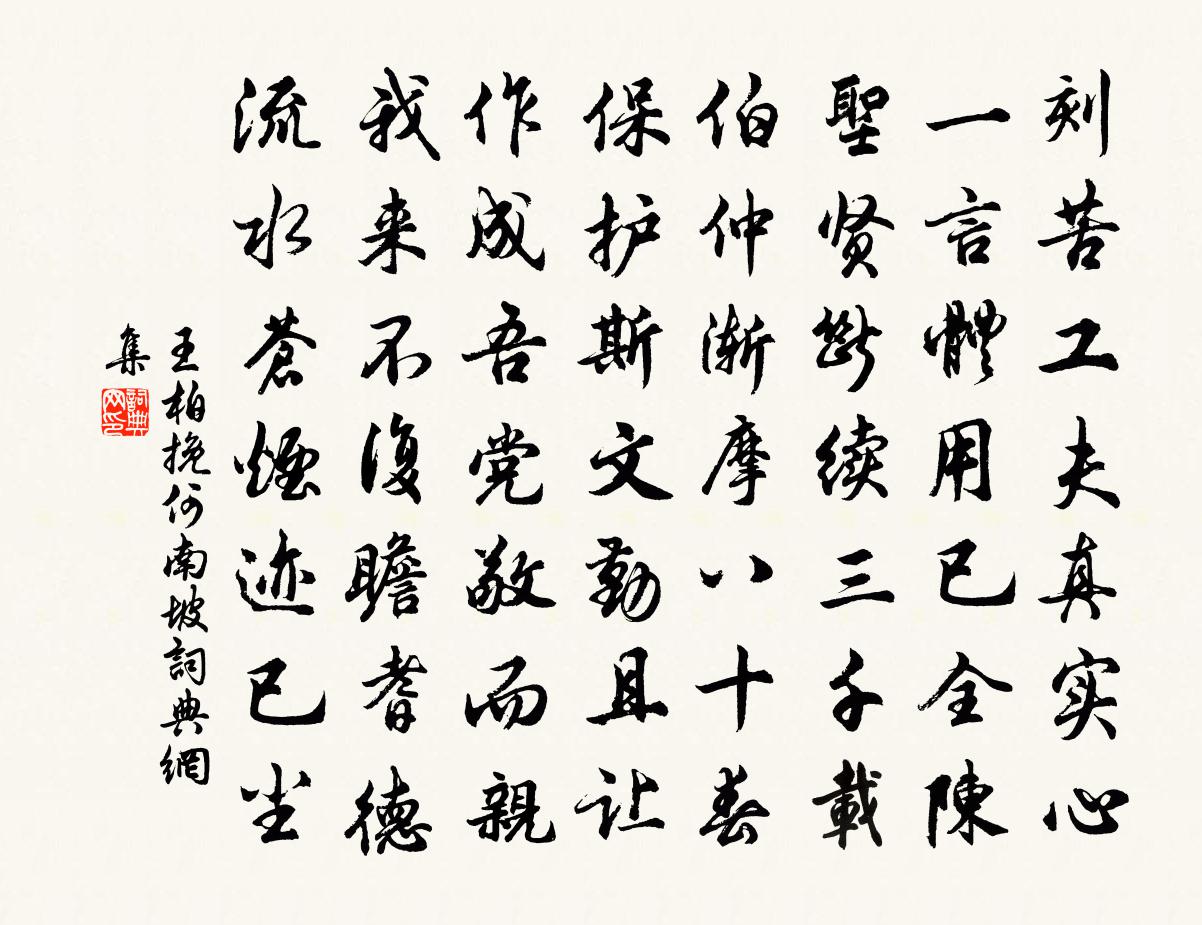 刻苦工夫真实心
一言體用已全陳
聖贤断续三千載
伯仲渐摩八十春
保护斯文勤且让
作成吾党敬而親
我来不復瞻耆德
流水蒼煙迹已尘
王柏挽何南坡詞典網
集
詞典网印